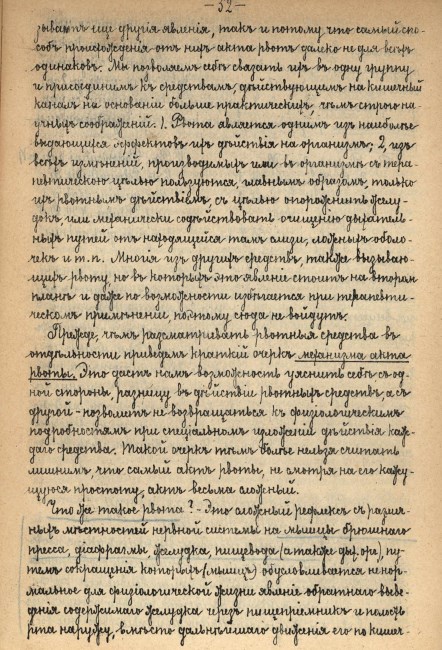 — 52 —
зываетъ еще другія явленія, такъ и потому, что самый спо-
собъ происхожденія отъ нихъ акта рвоты далеко не для всѣхъ
одинаковъ. Мы позволяемъ себѣ связать ихъ въ одну группу
и присоединимъ къ средствамъ, дѣйствующимъ на кишечный
каналъ на основаніи больше практическихъ, чѣмъ строго на-
учныхъ соображеній: 1. Рвота является однимъ изъ наиболѣе
выдающихся эффектовъ ихъ дѣйствія на организмъ; 2, изъ
всѣхъ измѣненій, производимыхъ ими въ организмѣ съ тера-
певтическою цѣлью пользуются, главнымъ образомъ, только
ихъ рвотнымъ дѣйствіемъ, съ цѣлью опорожнить желу-
докъ, или механически содѣйствовать очищенію дыхатель-
ныхъ путей отъ находящейся тамъ слизи, ложныхъ оболо-
чекъ и т. п. Многія изъ другихъ средствъ, также вызываю-
щихъ рвоту, но въ которыхъ это явленіе стоитъ на второмъ
планѣ и даже по возможности избѣгается при терапевти-
ческомъ примѣненіи поэтому сюда не войдутъ.
Прежде, чѣмъ разсматривать рвотныя средства въ
отдѣльности приведемъ краткій очеркъ механизма акта
рвоты. Это дастъ намъ возможность уяснить себѣ съ од-
ной стороны, разницу въ дѣйствіи рвотныхъ средствъ, а съ
другой - позволитъ не возвращаться къ физіологическимъ
подробностямъ при спеціальномъ изложеніи дѣйствія каж-
даго средства. Такой очеркъ тѣмъ болѣе нельзя считать
лишнимъ, что самый актъ рвоты, не смотря на его кажу-
щуюся простоту, актъ весьма сложный.
Что же такое рвота? - Это сложный рефлексъ съ разли-
ныхъ мѣстностей нервной системы на мышцы брюшнаго
пресса, діафрагмы, желудка, пищевода (а также дых. орг.), пу-
темъ сокращенія которыхъ (мышцъ) обусловливается ненор-
мальное для физіологической жизни явленіе обратнаго выве-
денія содержимаго желудка черезъ пищепріемникъ и полость
рта наружу, вмѣсто дальнѣйшаго движенія его по кишеч-